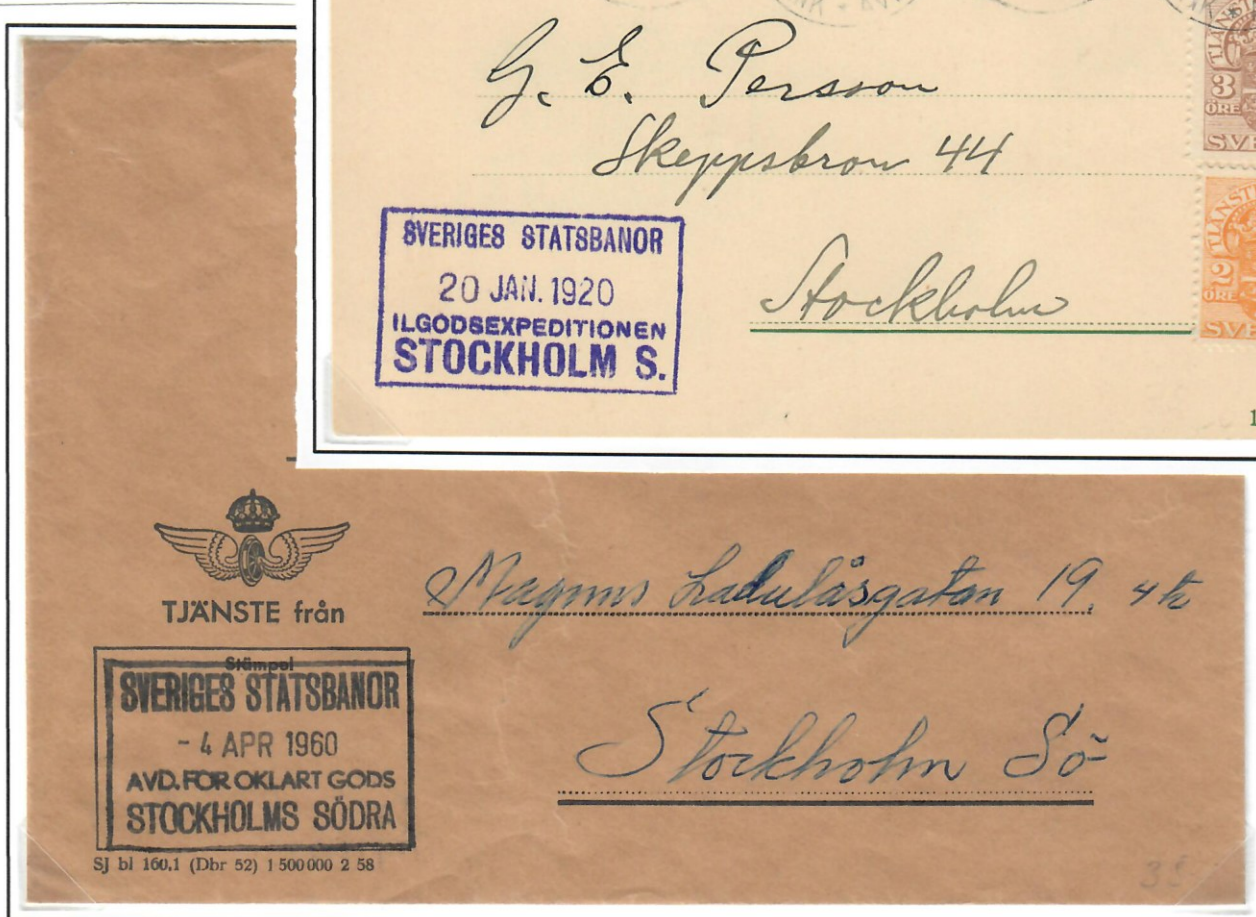 G. E. Persson
Skeppsbron 44
Stockholm
SVERIGES STATSBANOR
20 JAN. 1920
ILGODSEXPEDITIONEN
STOCKHOLM S.
TJÄNST
3
ÖRE
SVE
TJÄNST
2
ÖRE
SVE
1
TJÄNSTE från
Stämpel
SVERIGES STATSBANOR
- 4 APR 1960
AVD. FÖR OKLART GODS
STOCKHOLMS SÖDRA
SJ bl 160.1 (Dbr 52) 1 500 000 2 58
Magnus Ladulåsgatan 19, 4 tr
Stockholm Sö